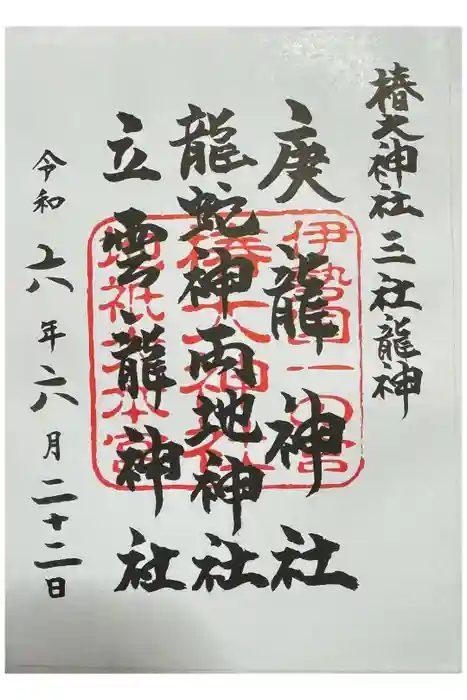 椿大神社三社龍神
庚龍神社
龍蛇神両地神社
立雲龍神社
令和六年六月二十二日
伊勢国一の宮
椿大神社
地祇猿田彦大本宮